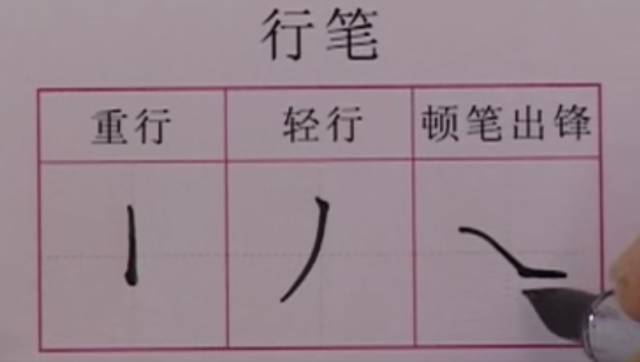 行笔
重行 轻行 顿笔出锋